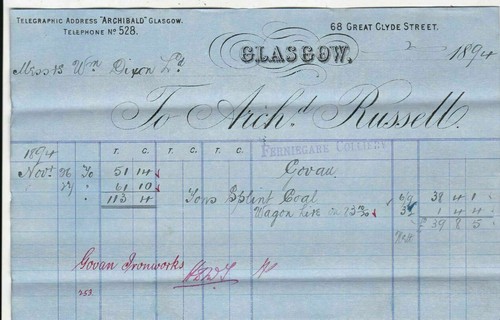 TELEGRAPHIC ADDRESS "ARCHIBALD" GLASGOW.
TELEPHONE No 528.
68 GREAT CLYDE STREET.
GLASGOW, 1894
Messrs Wm Dixon Ld
To Archd Russell.
FERNIEGARE COLLIERY
1894 T. C. T. C.
Novr 26 To 51 14 Govan
27 " 61 10
113 4 Tons Splint Coal 6/9 38 4 1
Wagon Hire 3d 1 4 4
£ 39 8 5
Govan Ironworks
253.